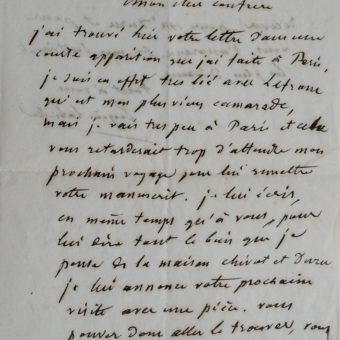 mon cher confrere
j'ai trouvé hier votre lettre dans une
courte apparition que j'ai faite à Paris,
je suis en effet tres lié avec Lefranc
qui est mon plus vieux camarade,
mais je vais tres peu à Paris et cela
vous retarderait trop d'attendre mon
prochain voyage pour lui remettre
votre manuscrit. je lui écris,
en même temps qu'à vous, pour
lui dire tout le bien que je
pense de la maison chivot et Duru
je lui annonce votre prochaine
visite avec une pièce. vous
pouvez donc aller le trouver, vous